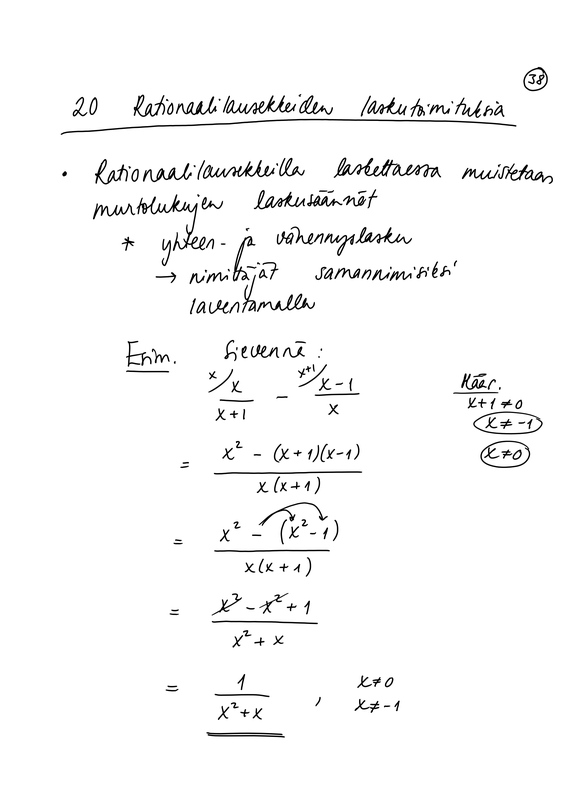 38
20 Rationaalilausekkeiden laskutoimituksia
• Rationaalilausekkeilla laskettaessa muistetaan
murtolukujen laskusäännöt
* yhteen- ja vähennyslasku
→ nimittäjät samannimisiksi
laventamalla
Esim. Sievennä:
x/ x/(x+1) − x+1/ (x−1)/x
Määr.
x+1≠0
x≠−1
x≠0
= (x² − (x+1)(x−1))/(x(x+1))
= (x² − (x²−1))/(x(x+1))
= (x² − x² + 1)/(x² + x)
= 1/(x²+x) , x≠0
x≠−1